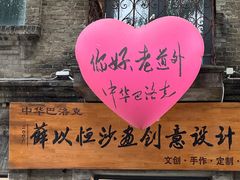 你好,老道外
中华巴洛克
中华巴洛克
薛以恒沙画创意设计
文创·手作·定制